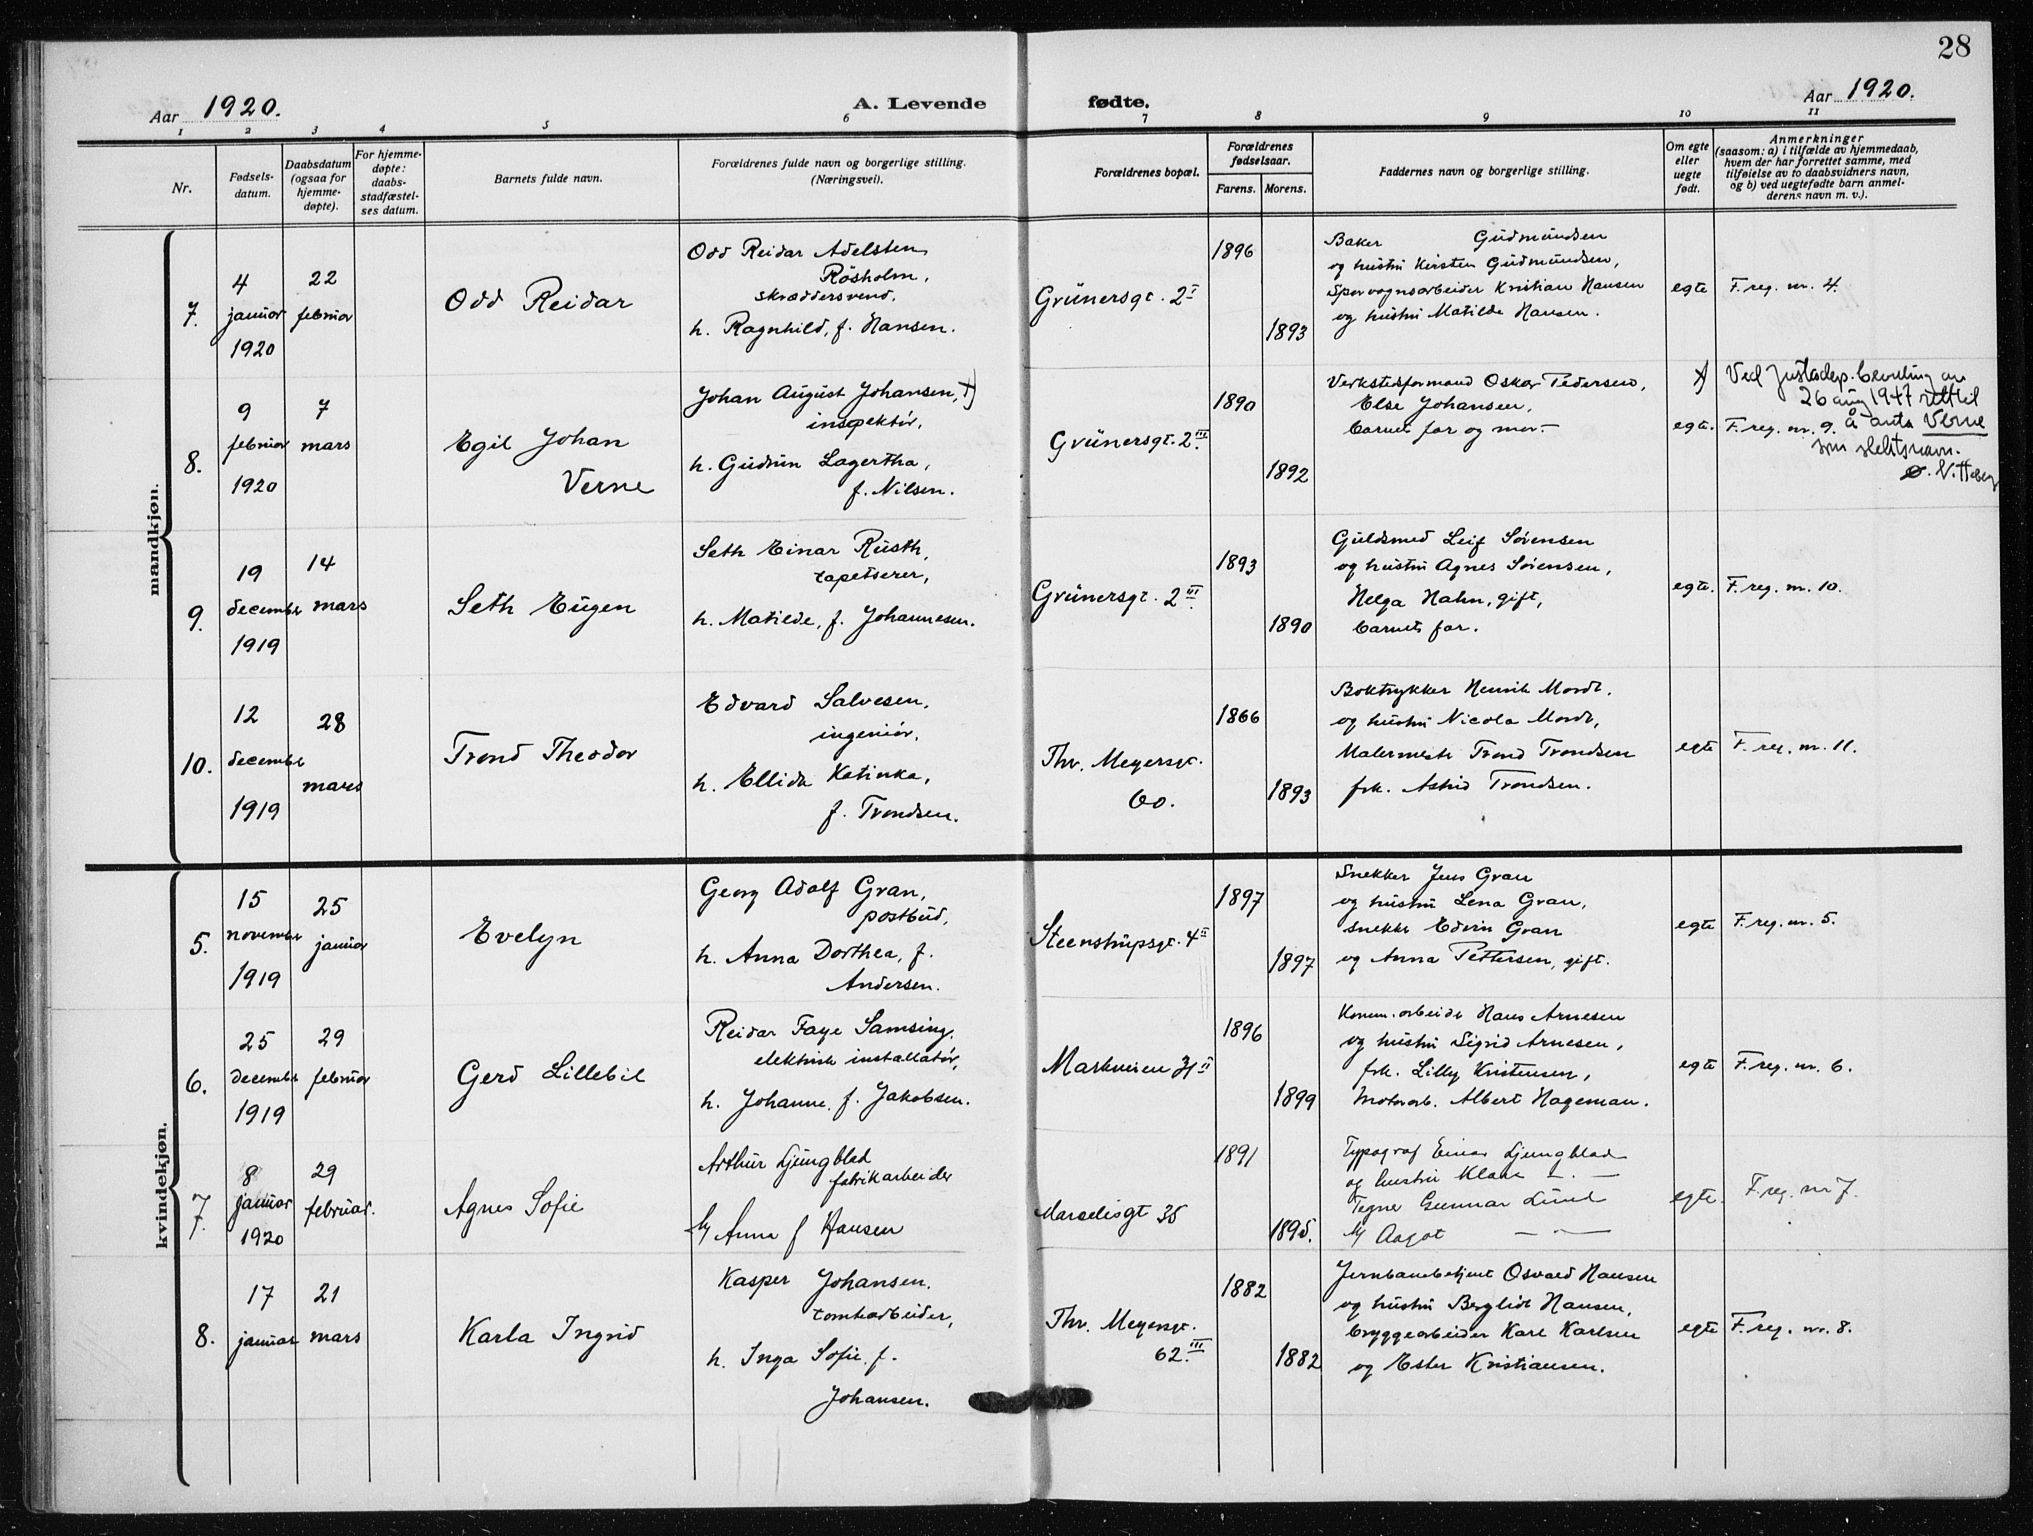 28
Aar 1920.
A. Levende fødte.
Aar 1920.
1 2 3 4 5 6 7 8 9 10 11
Nr.
Fødsels-
datum.
Daabsdatum
(ogsaa for
hjemme-
døpte).
For hjemme-
døpte:
daabs-
stadfæstel-
ses datum.
Barnets fulde navn.
Forældrenes fulde navn og borgerlige stilling.
(Næringsvei).
Forældrenes bopæl.
Forældrenes
fødselsaar.
Farens. Morens.
Faddernes navn og borgerlige stilling.
Om egte
eller
uegte
født.
Anmerkninger
(saasom: a) i tilfælde av hjemmedaab,
hvem der har forrettet samme, med
tilføielse av to daabsvidners navn,
og b) ved uegtefødte barn anmel-
derens navn m. v.).
mandkjøn.
7.
4
januar
1920
22
februar
Odd Reidar
Odd Reidar Adelsten
Røsholm,
skræddersvend,
h. Ragnhild, f. Hansen.
Grünersgt. 2 I
1896
1893
Baker Gudmundsen
og hustru Kirsten Gudmundsen,
Sporvognsarbeider Kristian Hansen
og hustru Matilde Hansen.
egte
F. reg. nr. 4.
8.
9
februar
1920
7
mars
Egil Johan
Verne
Johan August Johansen, x)
inspektør,
h. Gudrun Lagertha,
f. Nilsen.
Grünersgt. 2 III
1890
1892
Verkstedsformand Oskar Pedersen,
Else Johansen,
barnets far og mor.
egte.
F. reg. nr. 9.
x) Ved Justisdep. bevilling av
26 aug 1947 rett til
å anta Verne
som slektsnavn.
9.
19
december
1919
14
mars
Seth Eugen
Seth Einar Rusth,
tapetserer,
h. Matilde, f. Johannesen.
Grünersgt. 2 III
1893
1890
Guldsmed Leif Sørensen
og hustru Agnes Sørensen,
Helga Hahn, gift,
barnets far.
egte.
F. reg. nr. 10.
10.
12
december
1919
28
mars
Trond Theodor
Edvard Salvesen,
ingeniør,
h. Ellida Katinka,
f. Trondsen.
Thv. Meyersgt.
60.
1866
1893
Boktrykker Henrik Mordt,
og hustru Nicola Mordt,
Malermester Trond Trondsen
frk. Astrid Trondsen.
egte
F. reg. nr. 11.
kvindekjøn.
5.
15
november
1919
25
januar
Evelyn
Georg Adolf Gran,
postbud,
h. Anna Dorthea, f.
Andersen.
Steenstrupsgt. 4 II
1897
1897
Snekker Jens Gran
og hustru Lena Gran,
snekker Edvin Gran
og Anna Pettersen, gift.
egte
F. reg. nr. 5.
6.
25
december
1919
29
februar
Gerd Lillebil
Reidar Faye Samsing,
elektrisk installatør,
h. Johanne, f. Jakobsen.
Markveien 31 II
1896
1899
Komm.arbeider Hans Arnesen
og hustru Sigrid Arnesen,
frk. Lilly Kristensen,
motorarb. Albert Hageman.
egte
F. reg. nr. 6.
7.
8
januar
1920
29
februar.
Agnes Sofie
Arthur Ljungblad
fabrikarbeider
h/ Anna f Hansen
Marselisgt 35
1891
1895.
Typograf Einar Ljungblad
og hustru Klara — " —
Tegner Gunnar Lund
h/ Aagot — " —
egte.
F. reg. nr 7.
8.
17
januar
21
mars
Karla Ingrid
Kasper Johansen,
tomtearbeider,
h. Inga Sofie, f.
Johansen.
Thv. Meyersgt.
62. III
1882
1882
Jernbanebetjent Osvald Hansen
og hustru Bergliot Hansen,
bryggearbeider Karl Karlsen
og Ester Kristiansen.
egte
F. reg. nr. 8.